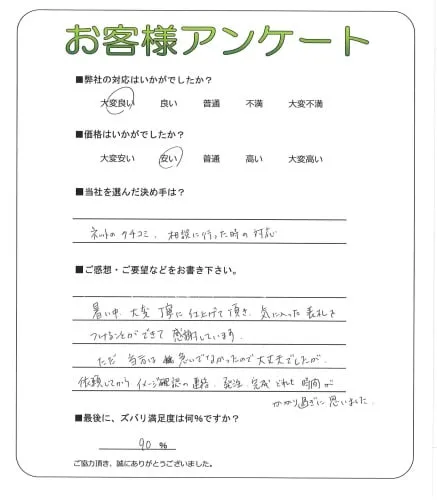 お客様アンケート
■弊社の対応はいかがでしたか？
大変良い 良い 普通 不満 大変不満
■価格はいかがでしたか？
大変安い 安い 普通 高い 大変高い
■当社を選んだ決め手は？
ネットのクチコミ、相談に行った時の対応
■ご感想・ご要望などをお書き下さい。
暑い中、大変丁寧に仕上げて頂き、気に入った表札を
つけることができて感謝しています。
ただ 当方は 急いでなかったので大丈夫でしたが、
依頼してから イメージ確認の連絡、発注、完成 どれも 時間が
かかり過ぎに思いました。
■最後に、ズバリ満足度は何％ですか？
90 ％
ご協力頂き、誠にありがとうございました。